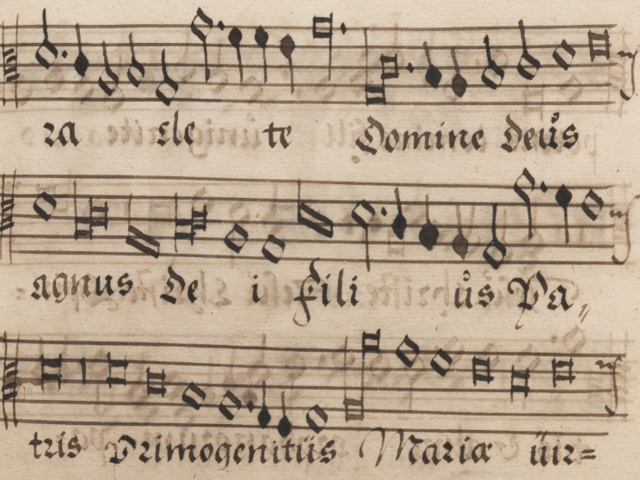 ra cle te Domine Deus
agnus De i Fili us Pa„
tris Primogenitus Mariæ uir=